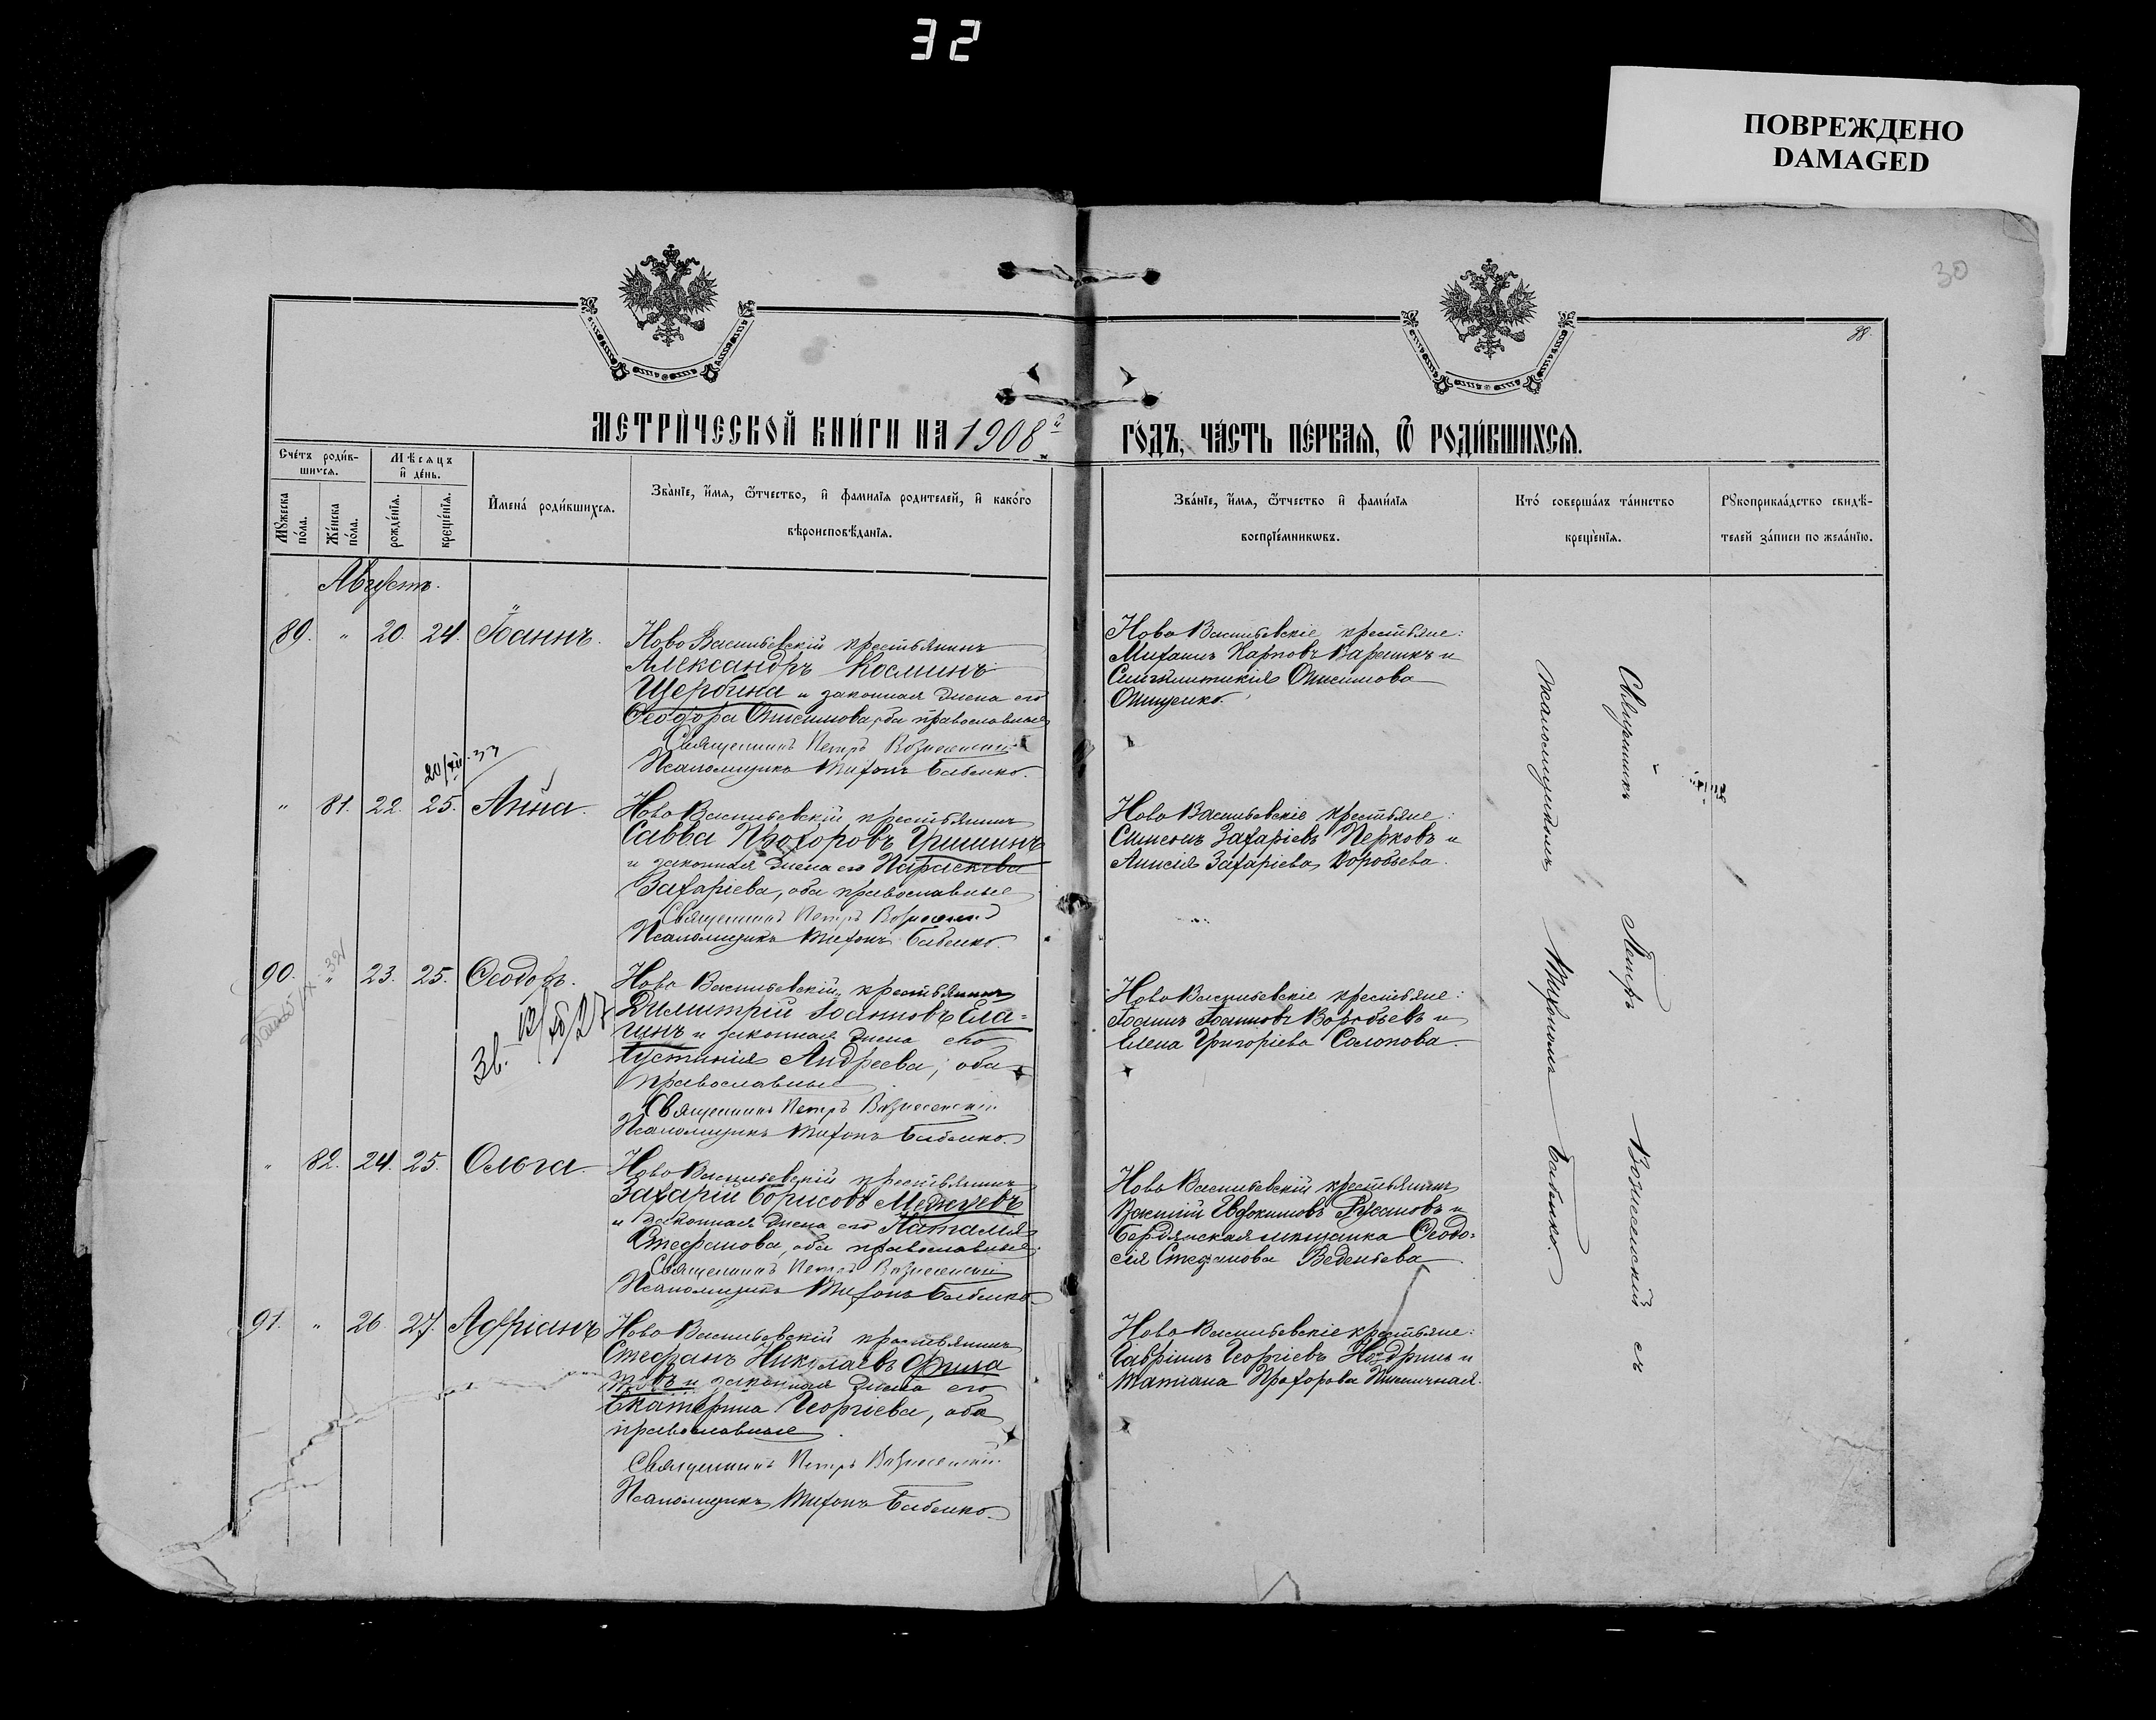 32
ПОВРЕЖДЕНО
DAMAGED
30
МЕТРИ́ЧЕСКОЙ КНИ́ГИ НА 1908 й
ГО́ДЪ, ЧА́СТЬ ПЕ́РВАЯ, Ѿ РОДИ́ВШИХСЯ.
Счётъ роди́в-
шихся.
Мѣсяцъ
и де́нь.
Мꙋжеска
по́ла.
Же́нска
по́ла.
рожде́нїя.
креще́нїя.
Имена́ роди́вшихся.
Зва́нїе, и́мя, ѻ́тчество, и фами́лїя родителей, и како́го
вѣроисповѣ́данїя.
Зва́нїе, и́мя, ѻ́тчество и фами́лїя
воспрїе́мникѡвъ.
Кто́ соверша́лъ та́инство
креще́нїя.
Рꙋкоприкла́дство свидѣ́-
телей за́писи по жела́нїю.
Августъ.
89. " 20. 24. Іоаннъ.
Ново Васильевскій крестьянинъ
Александръ Косминъ
Щербина и законная жена его
Ѳеодора Онисимова, оба православные
Священникъ Петръ Вознесенскій
Псаломщикъ Тихонъ Бабенко.
Ново Васильевскіе крестьяне:
Михаилъ Карповъ Вареникъ и
Синклитикія Онисимова
Онищенко.
" 81. 22. 25. Анна.
Ново Васильевскій крестьянинъ
Савва Прохоровъ Гришинъ
и законная жена его Параскева
Захаріева, оба православные
Священникъ Петръ Вознесенскій
Псаломщикъ Тихонъ Бабенко.
Ново Васильевскіе крестьяне:
Симеонъ Захаріевъ Перковъ и
Анисія Захаріева Воробьева.
90. " 23. 25. Ѳеодоръ.
Ново Васильевскій крестьянинъ
Димитрій Іоанновъ Ела-
гинъ и законная жена его
Іустинія Андреева, оба
православные
Священникъ Петръ Вознесенскій
Псаломщикъ Тихонъ Бабенко.
Ново Васильевскіе крестьяне:
Іоаннъ Іоанновъ Воробьевъ и
Елена Григоріева Солопова.
" 82. 24. 25. Ольга.
Ново Васильевскій крестьянинъ
Захарій Борисовъ
и законная жена его Наталія
Стефанова, оба православные.
Священникъ Петръ Вознесенскій
Псаломщикъ Тихонъ Бабенко.
Ново Васильевскій крестьянинъ
Василій Евдокимовъ Русановъ и
Бердянская мещанка Ѳеодо-
сія Стефанова Веденьева
91. " 26. 27. Адріанъ
Ново Васильевскій крестьянинъ
Стефанъ Николаевъ Фила
товъ и законная жена его
Екатерина Георгіева, оба
православные
Священникъ Петръ Вознесенскій
Псаломщикъ Тихонъ Бабенко.
Ново Васильевскіе крестьяне:
Гавріилъ Георгіевъ Ноздринъ и
Татіана Прохорова Пшеничная.
Священникъ Петръ Вознесенскій съ
псаломщикомъ Тихономъ Бабенко.